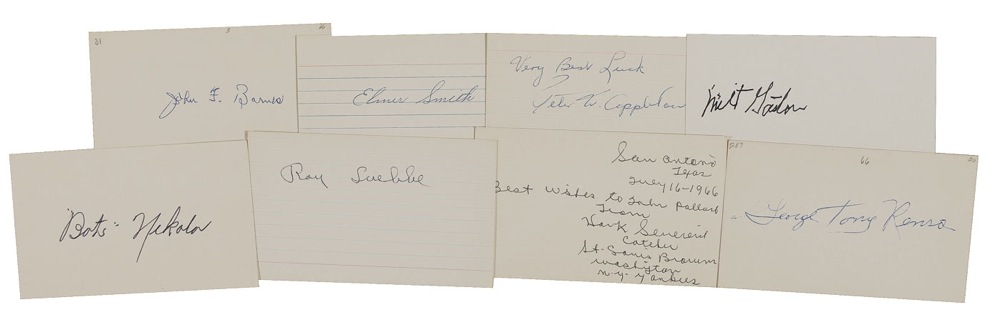 21
3
26
John F. Barnes
Elmer Smith
Very Best Luck
Peter W. Appleton
Milt Gaston
"Bots" Nekola
Ray
San Antonio
Texas
July 16-1966
Best Wishes to John Pollard
From
Hank Severeid
Catcher
St. Louis Browns
Washington
N-Y- Yankees
66
George Tony Rensa